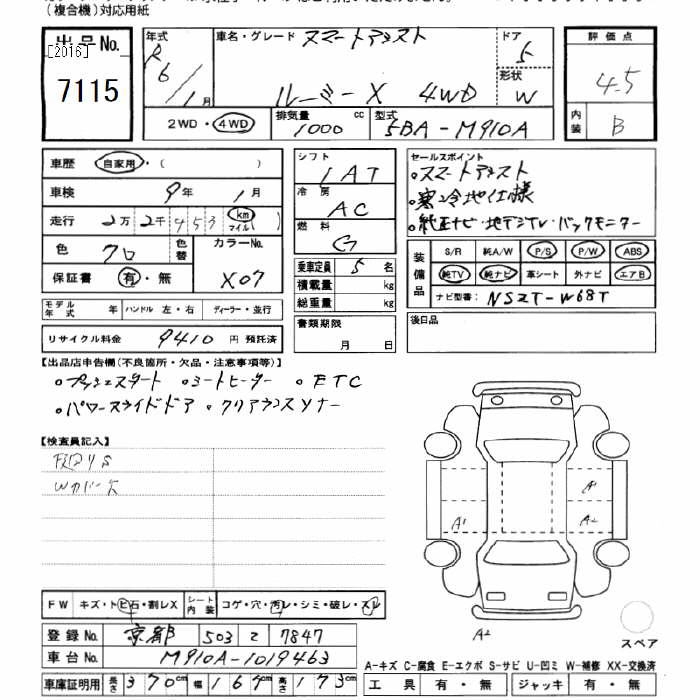 （複合機）対応用紙
出品No. [2016] 7115
年式 R 6/1月
車名・グレード スマートアシスト
ルーミー X 4WD
ドア 5
形状 W
評価点 4.5
内装 B
2WD・4WD
排気量 1000 cc
型式 5BA-M910A
車歴 自家用・( )
車検 9年 1月
走行 2万2千453 km マイル ( )
色 クロ 色替 カラーNo. X07
保証書 有・無
モデル年式 年 ハンドル 左・右 ディーラー・並行
リサイクル料金 9410 円 預託済
シフト 1AT
冷房 AC
燃料 G
乗車定員 5 名
積載量 kg
総重量 kg
書類期限 月 日
セールスポイント
・スマートアシスト
・寒冷地仕様
・純正ナビ・地デジTV・バックモニター
装備品 S/R 純A/W P/S P/W ABS
純TV 純ナビ 革シート 外ナビ エアB
ナビ型番: NSZT-W68T
後日品
【出品店申告欄(不良箇所・欠品・注意事項等)】
・プッシュスタート ・シートヒーター ・ETC
・パワースライドドア ・クリアランスソナー
【検査員記入】
Wカバー欠
A1
A1
A2
A2
FW キズ・トビ石・割レX シート内装 コゲ・穴・汚レ・シミ・破レ・スレ
登録No. 京都 503 て 7847
車台No. M910A-1019463
車庫証明用 長さ 370cm 幅 167cm 高さ 173cm
スペア
A-キズ C-腐食 E-エクボ S-サビ U-凹ミ W-補修 XX-交換済
工具 有・無 ジャッキ 有・無